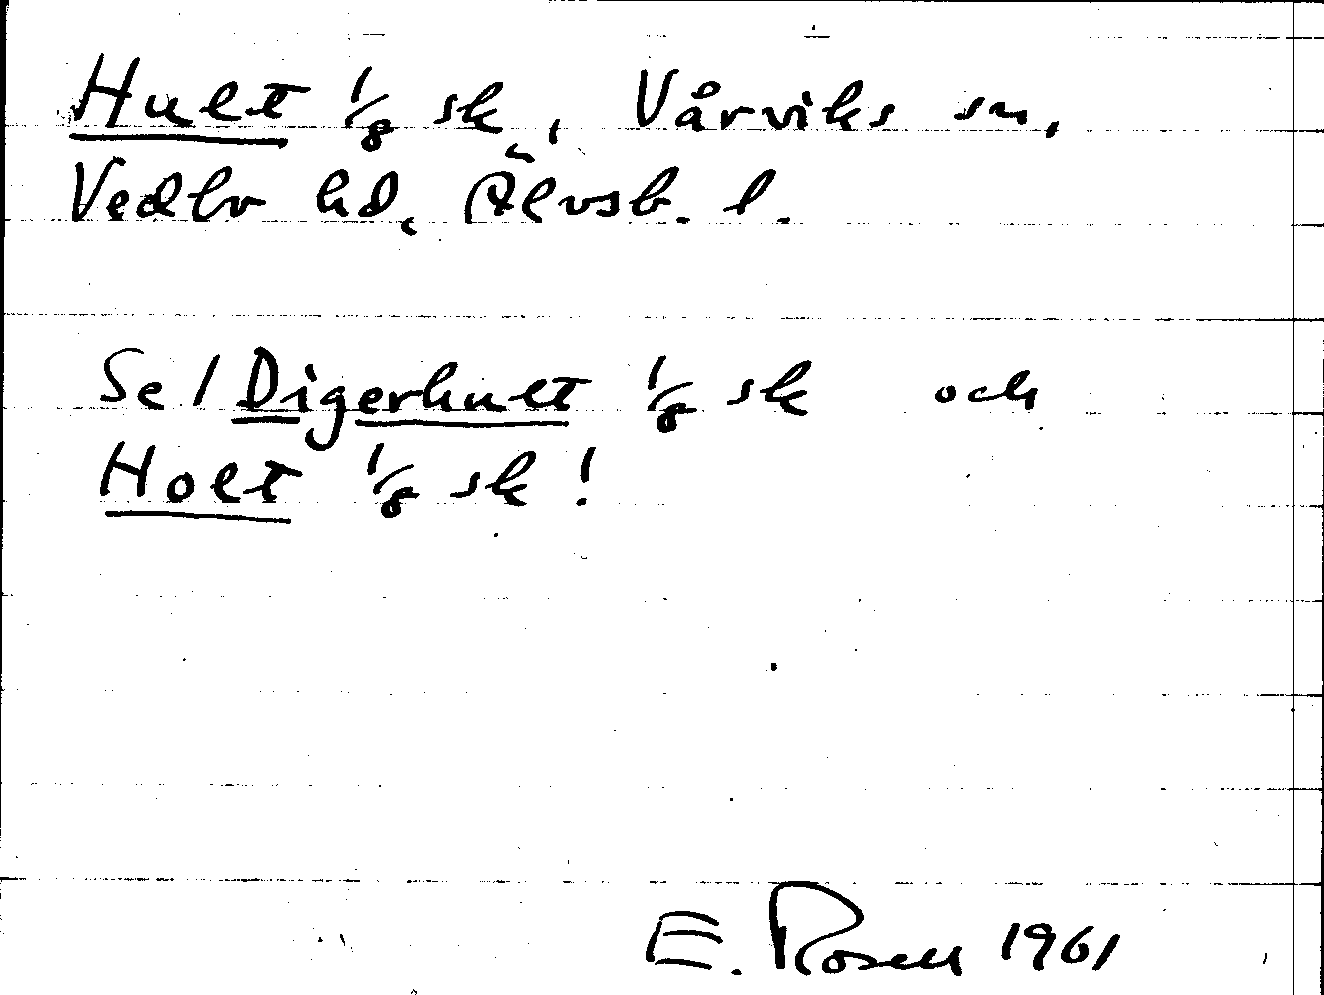 Hult 1/8 sk, Vårviks sn,
Vedbo hd, Älvsb. l.
Se / Digerhult 1/8 sk och
Holt 1/8 sk !
E. Rosell 1961